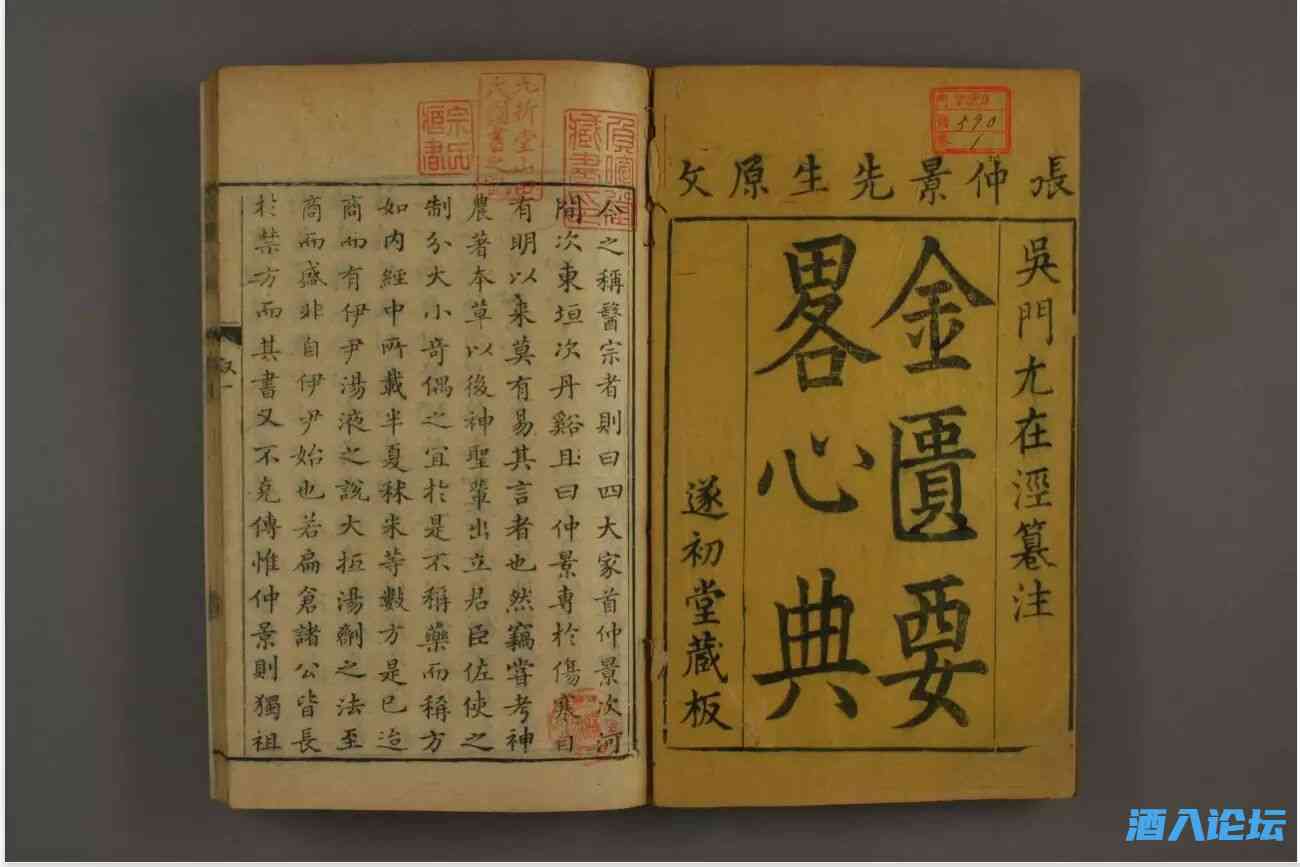 張仲景先生原文
吳門尤在涇纂注
金匱要
畧心典
遂初堂藏板
590
1
今之稱醫宗者則曰四大家首仲景次河
間次東垣次丹谿且曰仲景專於傷寒自
有明以來莫有易其言者也然竊嘗考神
農著本草以後神聖輩出立君臣佐使之
制分大小奇偶之宜於是不稱藥而稱方
如內經中所載半夏秫米等數方是已迨
商而有伊尹湯液之說大抵湯劑之法至
商而盛非自伊尹始也若扁倉諸公皆長
於禁方而其書又不克傳惟仲景則獨祖
叙一
九折堂山田
氏圖書之記
宗氏
藏書
藏書
酒入论坛